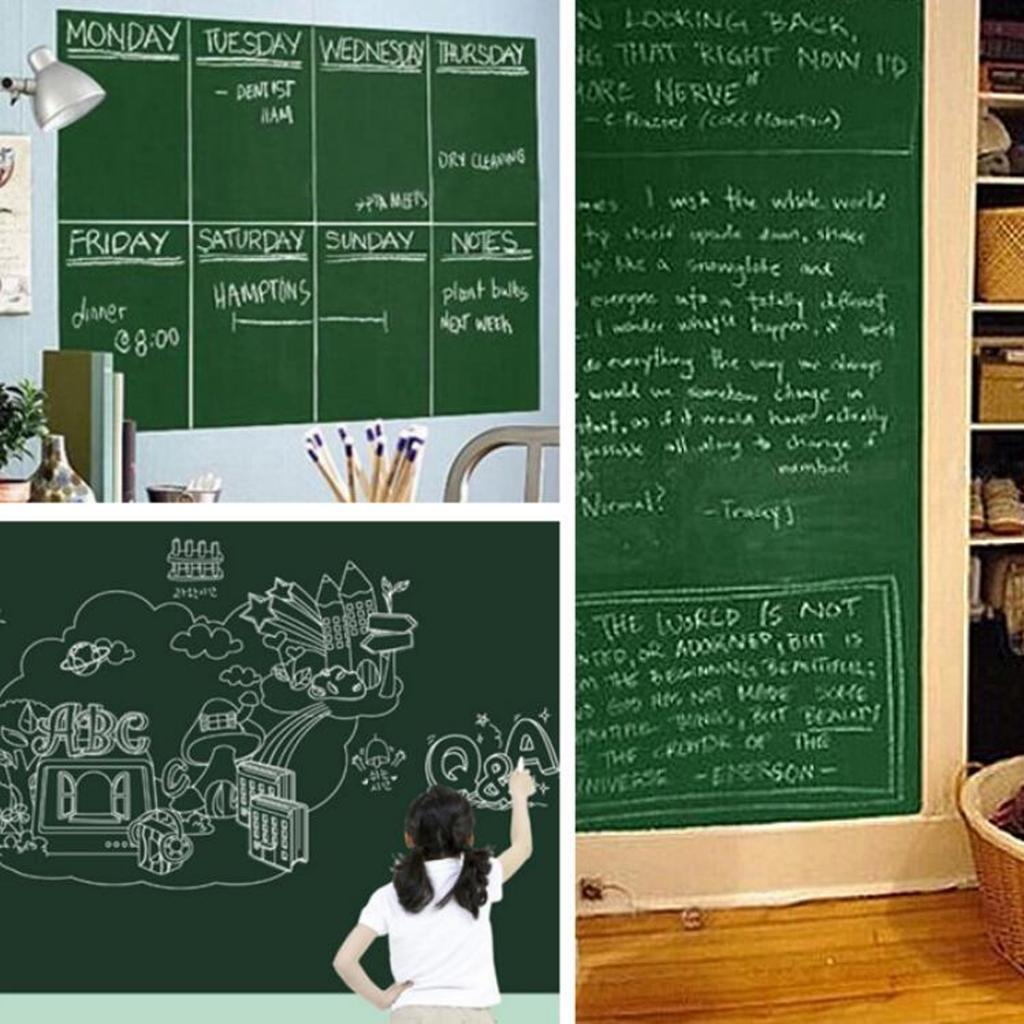 MONDAY
TUESDAY
- DENTIST
11AM
WEDNESDAY
THURSDAY
DRY CLEANING
FRIDAY
dinner
@ 8:00
SATURDAY
HAMPTONS
SUNDAY
NOTES
plant bulbs
NEXT WEEK
LOOKING BACK,
THAT RIGHT NOW I'D
MORE NERVE"
(Cold Mountain)
I wish the whole world
itself upside down, shake
like a snowglobe and
everyone into a totally different
I wonder what'd happen, if we'd
do everything the way we always
would we somehow change in
as if it would have actually
possible all along to change
Normal?
- Tracey J
THE WORLD IS NOT
OR ADORNED, BUT IS
THE BEGINNING BEAUTIFUL;
GOD HAS NOT MADE SOME
THINGS, BUT BEAUTY
THE CREATOR OF THE
UNIVERSE - EMERSON -
ABC
Q&A